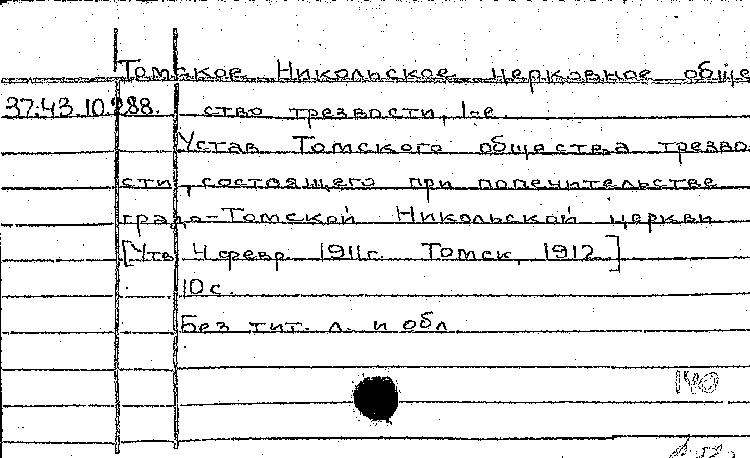 Томское Никольское церковное обще
37.43.10.288. ство трезвости, 1-е.
Устав Томского общества трезво
сти, состоящего при попечительстве
градо-Томской Никольской церкви
[Утв 4 февр. 1911г. Томск, 1912.]
10с.
Без тит. л. и обл.
140